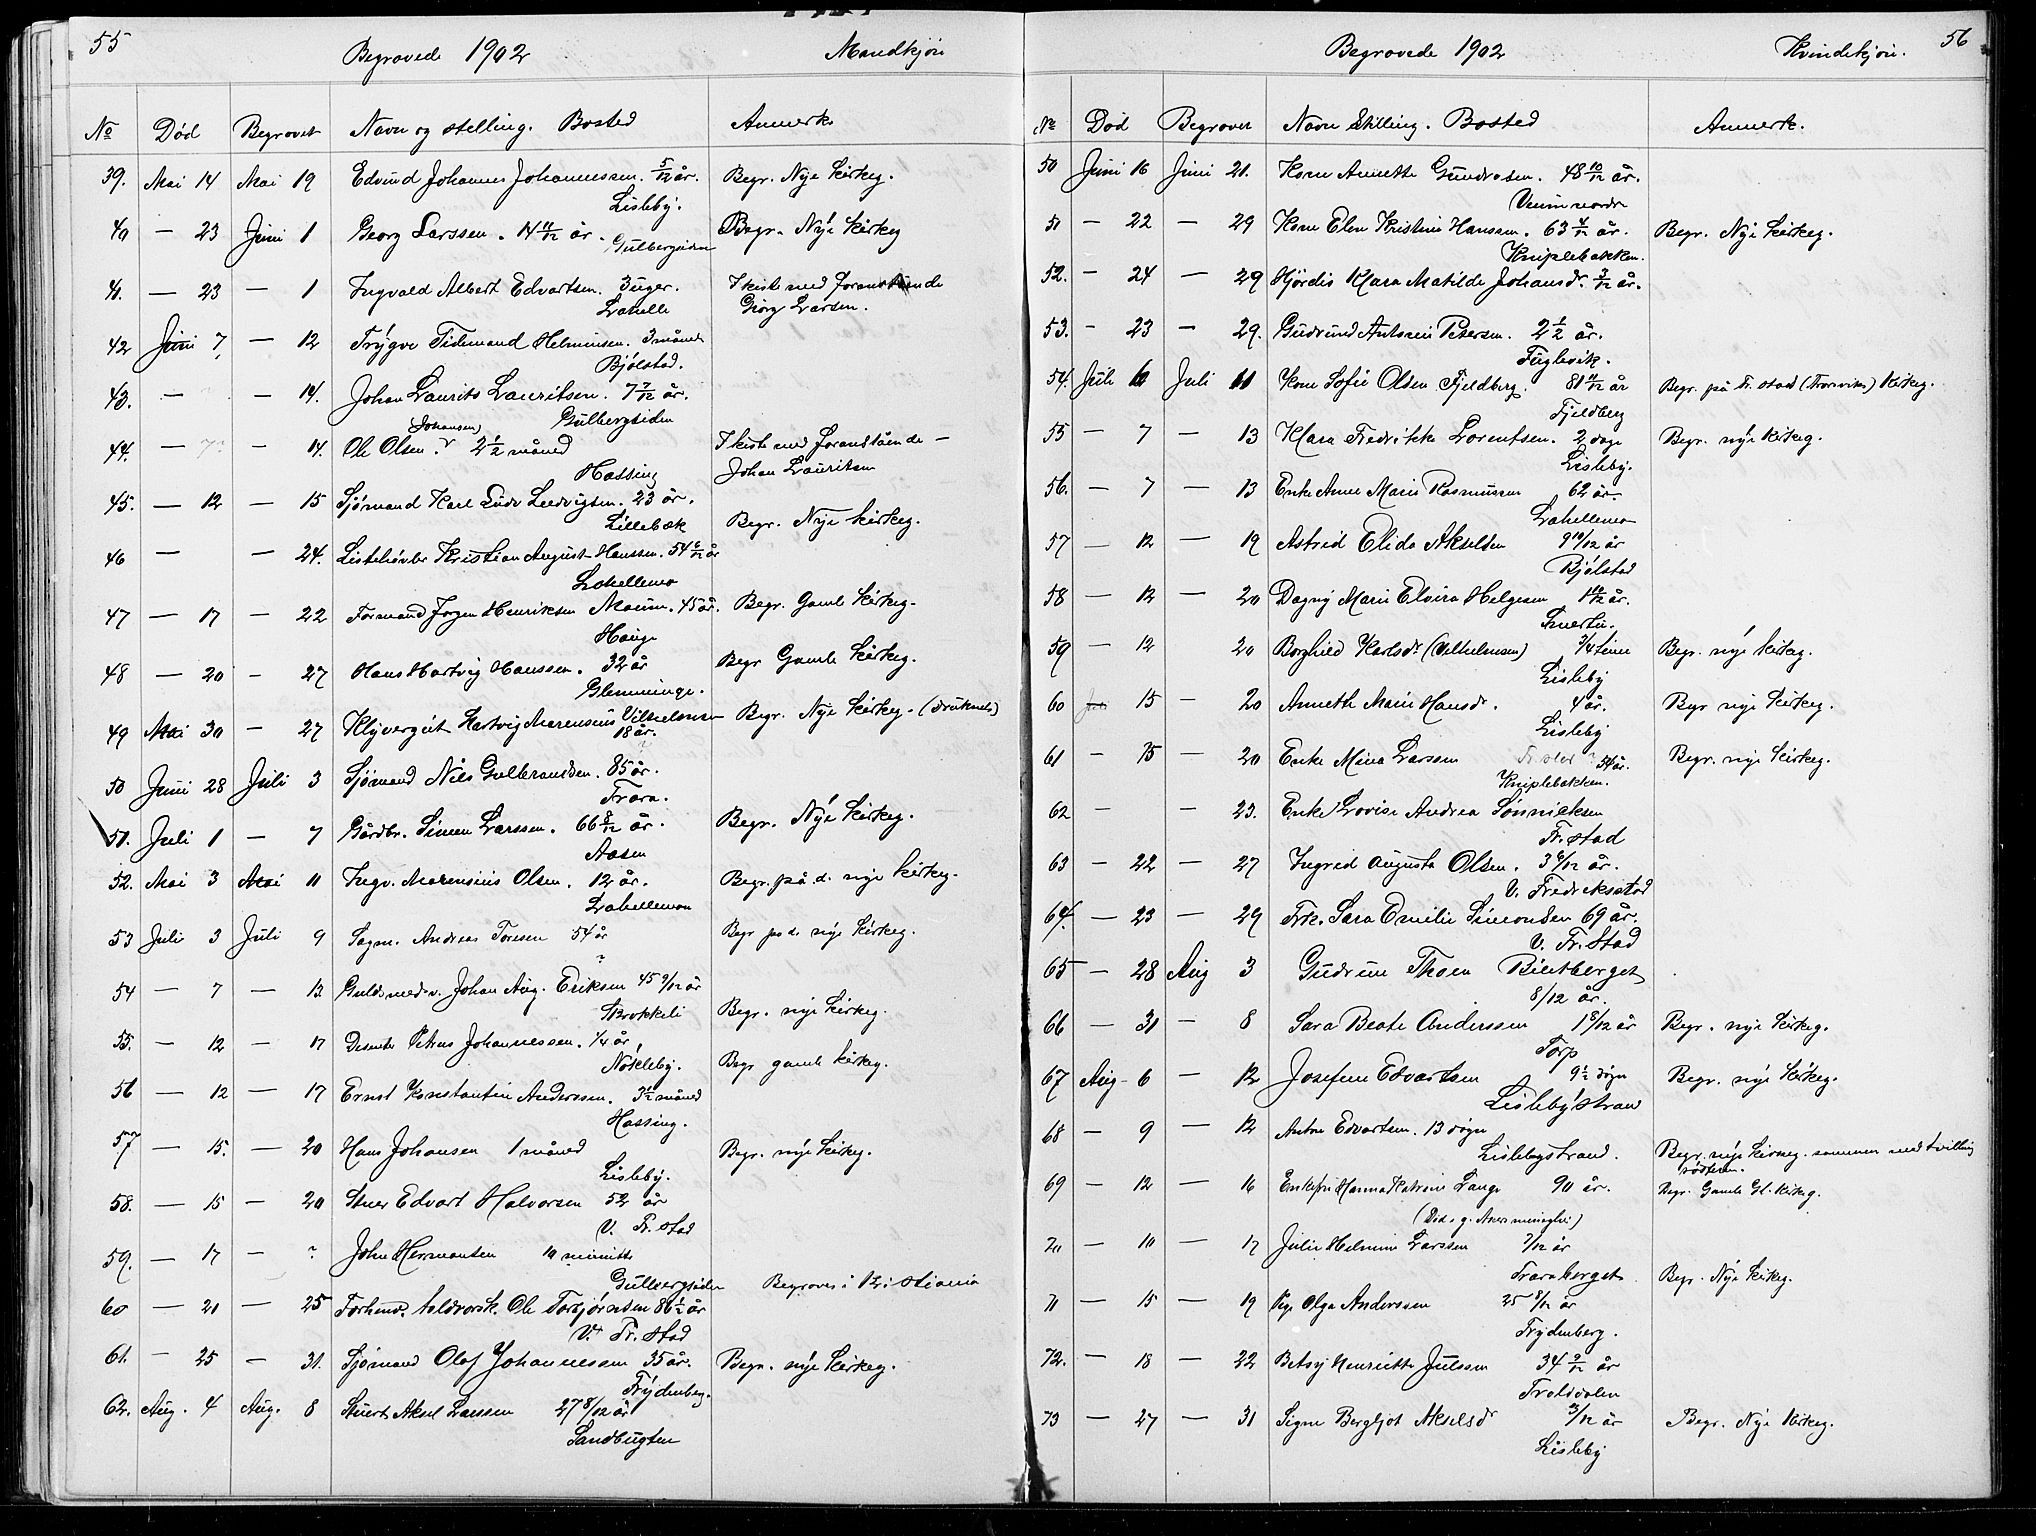 55
Begravede 1902 Mandkjøn
No Død Begravet Navn og stelling. Bosted Anmerk.
39. Mai 14 Mai 19 Edvind Johannes Johannessen. 5/12 år. Begr. Nye kirkeg.
Lisleby.
40 — 23 Juni 1 Georg Larssen. 14 11/12 år. Begr. Nye kirkeg
Gulbergsiden
41. — 23 — 1 Ingvald Albert Edvartsen. 3 uger. I kiste med foranstående
Lahelle Georg Larsen.
42 Juni 7 — 12 Trygve Tidemand Helminsen. 3 måned
Bjølstad.
43. — — 14. Johan Laurits Lauritsen. 7 7/12 år.
Gulbergsiden
(Johansen)
44. — 7? — 14. Ole Olsen. 2 1/2 måned I kiste med foranstående —
Hassing Johan Lauritsen
45. — 12 — 15 Sjømand Karl Ludv Ludvigsen. 23 år.
Lillebæk Begr. Nye kirkeg.
46 — — 24. Kristian August Hanssen. 54 6/12 år
Lahellemo
47 — 17 — 22 Formand Jørgen Henriksen Moum. 45 år. Begr. Gamle kirkeg.
Hauge
48 — 20 — 27 Hans Hartvig Hanssen. 32 år Begr Gamle kirkeg.
Glemminge.
49 Mai 30 — 27 Hartvig Marensius Vilhelmsen Begr. Nye kirkeg. (druknet)
18 år.
?
50 Juni 28 Juli 3 Sjømand Nils Gulbrandsen. 85 år.
Trara.
51. Juli 1 — 7 Gårdbr. Simen Larssen. 66 8/12 år. Begr. Nye kirkeg.
Aasen
52. Mai 3 Mai 11 Ingv. Marensius Olsen. 12 år. Begr. på d. nye kirkeg.
Lahellemoen
53 Juli 3 Juli 9 Sagm. Andreas Toresen 54 år Begr på d. nye kirkeg.
?
54 — 7 — 13 Guldsmedsv. Johan Aug. Eriksen 45 9/12 år
Brokkeli Begr. nye kirkeg.
55. — 12 — 17 Petrus Johannessen. 1/4 år
Nøkleby. Begr gamle kirkeg.
56 — 12 — 17 Ernst Konstantin Anderssen. 3 1/2 måned
Hassing.
57 — 15. — 20 Hans Johansen 1 måned Begr. nye kirkeg.
Lisleby.
58. — 15 — 20 Stuer Edvart Halvorsen 52 år
V. Fr. stad
59. — 17 — ? John Hermansen 10 minutter
Gulbergsiden Begraves i Kristiania
60 — 21 — 25 Forhenv. Ole Torbjørnsen 86 1/2 år
V. Fr. stad
61. — 25 — 31. Sjømand Olof Johannessen 35 år. Begr. nye kirkeg.
Frydenberg.
62. Aug. 4 Aug. 8 Stuert Aksel Larssen 27 8/12 år
Sandbugten
56
Begravede 1902 Kvindekjøn.
No Død Begraver Navn Stilling. Bosted Anmerk.
50 Juni 16 Juni 21. Kone Annette Gundersen. 48 10/12 år.
Veum nordre
51 — 22 — 29 Kone Elen Kristine Hanssen. 63 4/12 år. Begr. Nye kirkeg.
Kniplebakken.
52. — 24 — 29 Hjørdis Klara Matilde Johansdr. 3/12 år.
53. — 23 — 29. Gudrund Antonie Petersen. 2 1/2 år.
Fuglevik.
54. Juli Juli 11 Kone Sofie Olsen Fjeldberg. 81 11/12 år Begr. på Fr. stad (Trosvikens) kirkeg.
Fjeldberg
55 — 7 — 13 Klara Fredrikke Lorentsen. 2 dage Begr. nye kirkeg.
Lisleby.
56. — 7 — 13 Enke Anne Marie Rasmussen 62 år.
Lahellemo
57 — 12 — 19 Astrid Elida Akselsen 9 10/12 år
Bjølstad
58 — 12 — 20 Dagny Marie Elvira Helgesen 1 10/12 år.
59 — 12 20 Borghild Karlsdr (Vilhelmsen) 3/4 time Begr. nye kirkeg.
Lisleby
60 Juli 15 — 20 Anneth Marie Hansdr. 4 år. Begr nye kirkeg.
Lisleby
61 — 15 — 20 Enke Mina Larssen Fr. stad 54 år. Begr. nye kirkeg.
Kniplebakken.
62 — 23. Enke Lovise Andrea Sønnichsen
Fr. stad
63 — 22 — 27 Ingrid Augusta Olsen. 3 6/12 år.
V. Fredriksstad
64. — 23 — 29 Frk. Sara Emilie Simonsen 69 år.
V. Fr. Stad
65 — 28 Aug 3 Gudrun Thoen Bintberget
8/12 år.
66 — 31 — 8 Sara Beate Anderssen 1 8/12 år Begr. nye kirkeg.
Torp
67 Aug. 6 — 12 Josefine Edvartsen 9 1/2 døgn Begr. nye kirkeg.
Lislebystrand
68 — 9 — 12 Antone Edvartsen. 13 døgn
Lislebystrand. Begr. nye kirkeg. sammen med tvilling
søsteren.
69 — 12 — 16 Enkefru Hanna Katrine Lange 90 år. Begr. Gamle Gl. kirkeg.
(Død. g. Akers menighet)
70 — 10 — 17 Julie Helmine Larssen 7/12 år
Traraberget Begr. Nye kirkeg.
71 — 15 — 19 Pige Olga Anderssen 25 8/12 år
Frydenberg.
72. — 18 — 22 Betsy Henriette Julssen 34 9/12 år
Troldalen
73 — 27 — 31 Signe Bergljot Akselsdr 3/12 år Begr. Nye kirkeg.
Lisleby